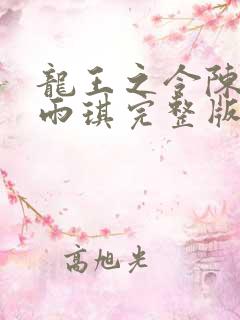 龍王之令陳
雨琪完整版
高旭光